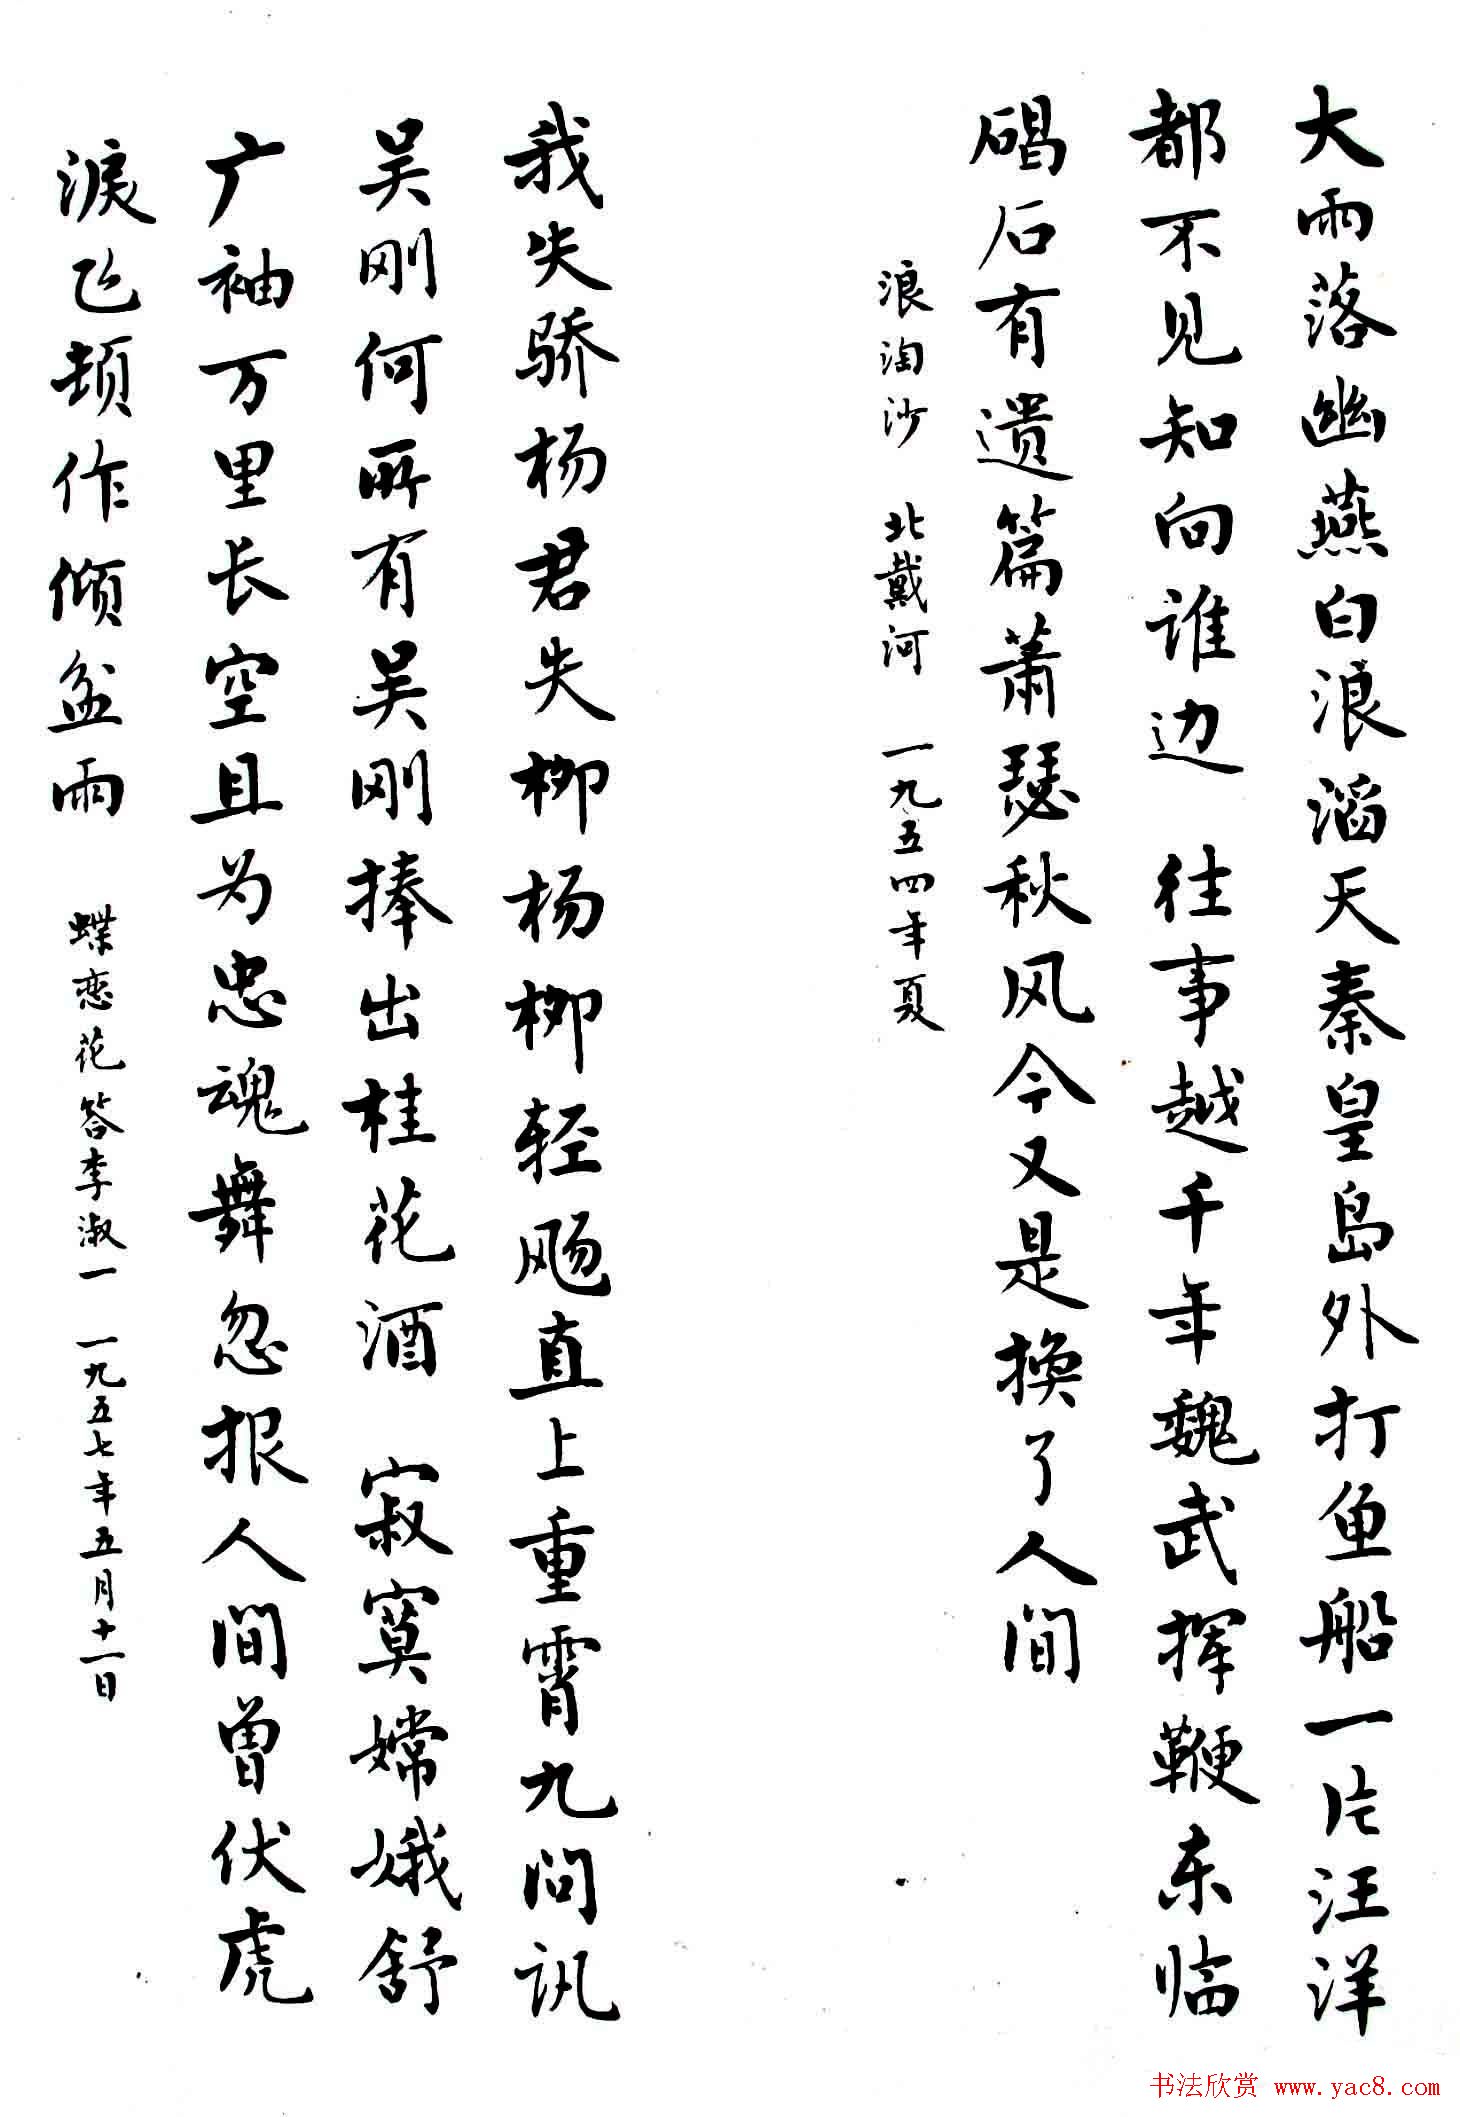 大雨落幽燕白浪滔天秦皇岛外打鱼船一片汪洋
都不见知向谁边 往事越千年魏武挥鞭东临
碣石有遗篇萧瑟秋风今又是换了人间
浪淘沙 北戴河 一九五四年夏
我失骄杨君失柳杨柳轻飏直上重霄九问讯
吴刚何所有吴刚捧出桂花酒 寂寞嫦娥舒
广袖万里长空且为忠魂舞忽报人间曾伏虎
淚飞顿作倾盆雨 蝶恋花答李淑一 一九五七年五月十一日
书法欣赏 www.yac8.com